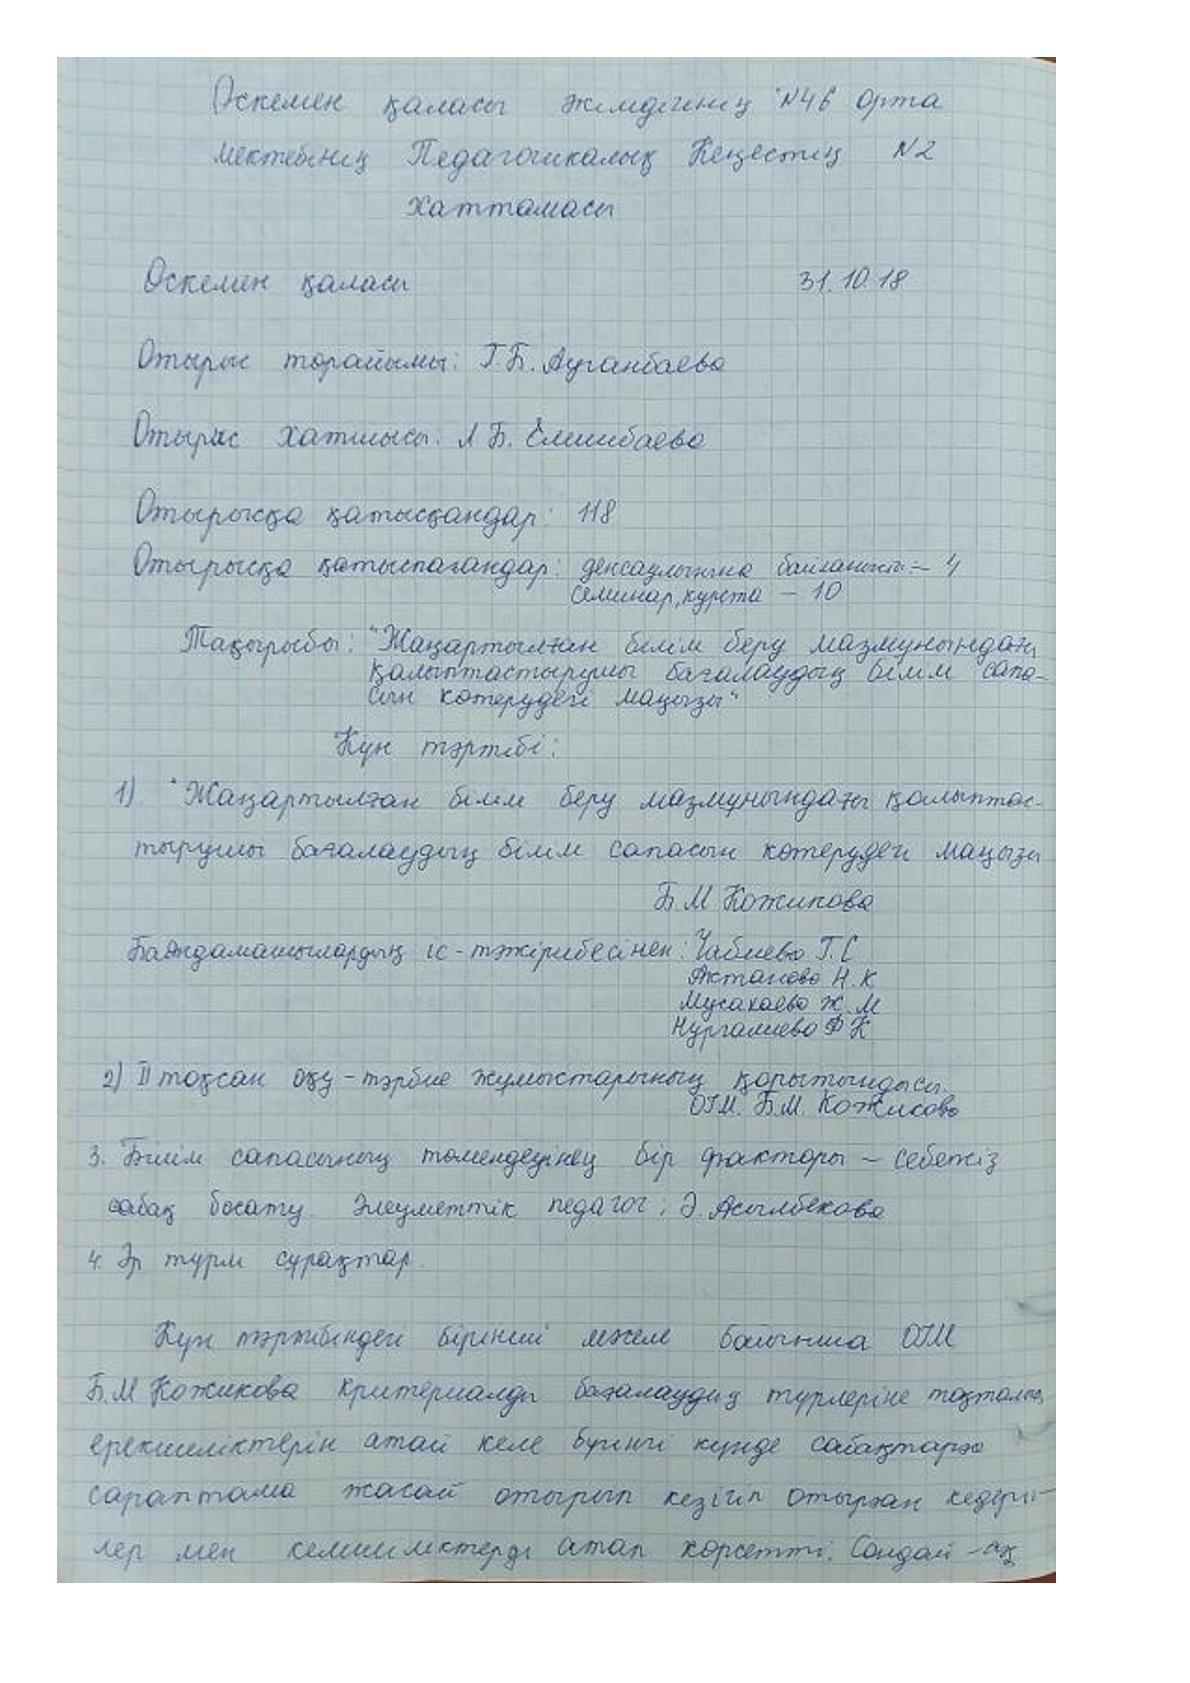 Өскемен қаласы әкімдігінің №46 орта
мектебінің Педагогикалық Кеңестің №2
хаттамасы
Өскемен қаласы 31.10.18
Отырыс төрайымы: Г.Б. Ауганбаева
Отырыс хатшысы. Л Б. Елешибаева
Отырысқа қатысқандар: 118
Отырысқа қатыспағандар: денсаулығына байланысты – 4
семинар, курста – 10
Тақырыбы: "Жаңартылған білім беру мазмұнындағы
қалыптастырушы бағалаудың білім сапа-
сын көтерудегі маңызы"
Күн тәртібі:
1). "Жаңартылған білім беру мазмұнындағы қалыптас-
тырушы бағалаудың білім сапасын көтерудегі маңызы
Б.М Кожикова
Баяндамашылардың іс-тәжірибесінен: Чабиева Г.С
Актанова Н.К
Мусакаева Ж.М
Нургалиева Ф К
2) II тоқсан оқу-тәрбие жұмыстарының қорытындысы.
ОІМ. Б.М. Кожикова
3. Білім сапасының төмендеуінің бір факторы – себепсіз
сабақ босату. Әлеуметтік педагог: Э. Асылбекова
4. Әр түрлі сұрақтар.
Күн тәртібіндегі бірінші мәселе бойынша ОІМ
Б.М Кожикова критериалды бағалаудың түрлеріне тоқталып,
ерекшеліктерін атай келе бүгінгі күнде сабақтарға
сараптама жасай отырып кезігіп отырған кедергі-
лер мен кемшіліктерді атап көрсетті. Сондай-ақ